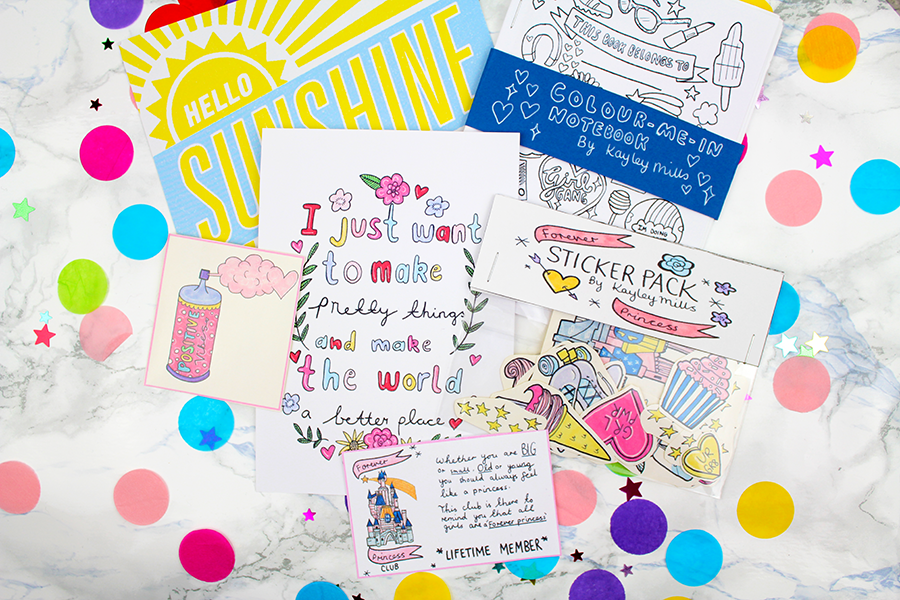 HELLO
SUNSHINE
THIS BOOK BELONGS TO
COLOUR-ME-IN
NOTEBOOK
By Kayley Mills
GIRL
GANG
I'M DOING
I just want
to make
pretty things
and make
the world
a better place
POSITIVE
Vibes
Forever
STICKER PACK
By Kayley Mills
Princess
Forever
Princess
CLUB
Whether you are BIG
or small. Old or young,
you should always feel
like a princess.
This club is there to
remind you that all
girls are a "Forever princess"
*LIFETIME MEMBER*